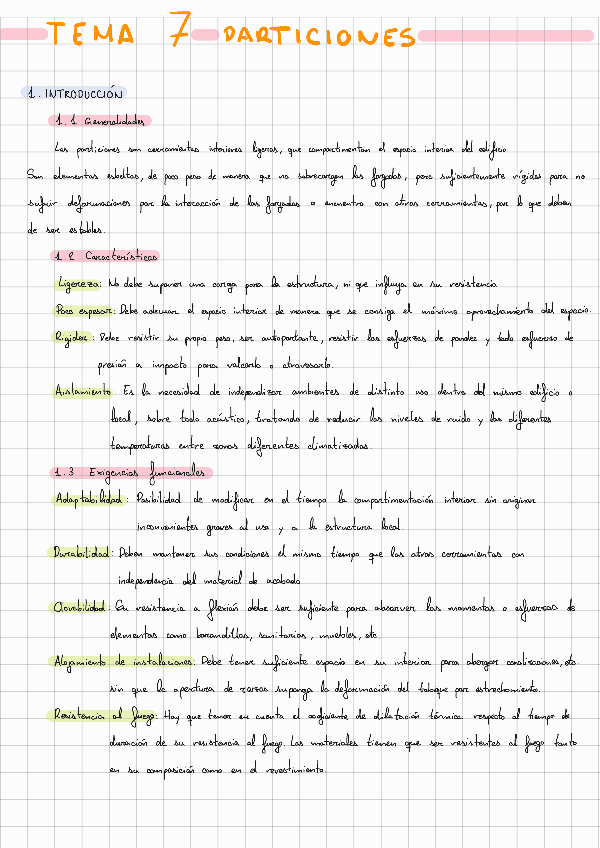 TEMA 7 PARTICIONES
1. INTRODUCCIÓN
1.1 Generalidades
Las particiones son cerramientos interiores ligeros, que compartimentan el espacio interior del edificio.
Son elementos esbeltos, de poco peso de manera que no sobrecargen los forjados, pero suficientemente rígidos para no
sufrir deformaciones por la interacción de los forjados o encuentro con otros cerramientos, por lo que deben
de ser estables.
1.2 Características
Ligereza: No debe suponer una carga para la estructura, ni que influya en su resistencia
Poco espesor: Debe adecuar el espacio interior de manera que se consiga el máximo aprovechamiento del espacio.
Rigidez: Debe resistir su propio peso, ser autoportante, resistir los esfuerzos de pandeo y todo esfuerzo de
presión o impacto para volcarlo o atravesarlo.
Aislamiento: Es la necesidad de independizar ambientes de distinto uso dentro del mismo edificio o
local, sobre todo acústico, tratando de reducir los niveles de ruido y las diferentes
temperaturas entre zonas diferentes climatizadas.
1.3 Exigencias funcionales
Adaptabilidad: Posibilidad de modificar en el tiempo la compartimentación interior sin originar
inconvenientes graves al uso y a la estructura local
Durabilidad: Deben mantener sus condiciones el mismo tiempo que los otros cerramientos con
independencia del material de acabado
Clavabilidad: Su resistencia a flexión debe ser suficiente para absorver los momentos o esfuerzos de
elementos como barandillas, sanitarios, muebles, etc.
Alojamiento de instalaciones: Debe tener suficiente espacio en su interior para abergar canalizaciones, etc.
sin que la apertura de rozas suponga la deformación del tabique por estrechamiento.
Resistencia al fuego: Hay que tener en cuenta el coeficiente de dilatación térmica respecto al tiempo de
duración de su resistencia al fuego. Los materiales tienen que ser resistentes al fuego tanto
en su composición como en el revestimiento.